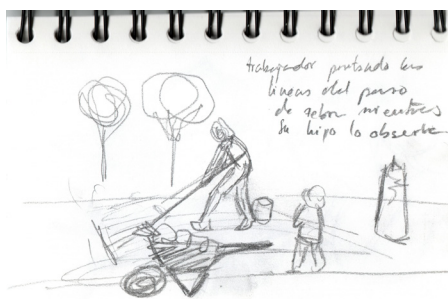 trabajador pintando las
lineas del paso
de zebra mientras
su hijo lo observa